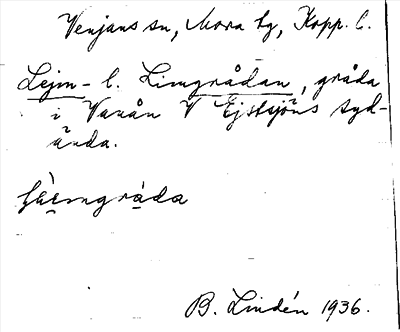 Venjans sn, Mora tg, Kopp. l.
Lejm- l. Limgrådan, gråda
i Vanån V Ejsksjöns syd-
ända.
B. Lindén 1936.